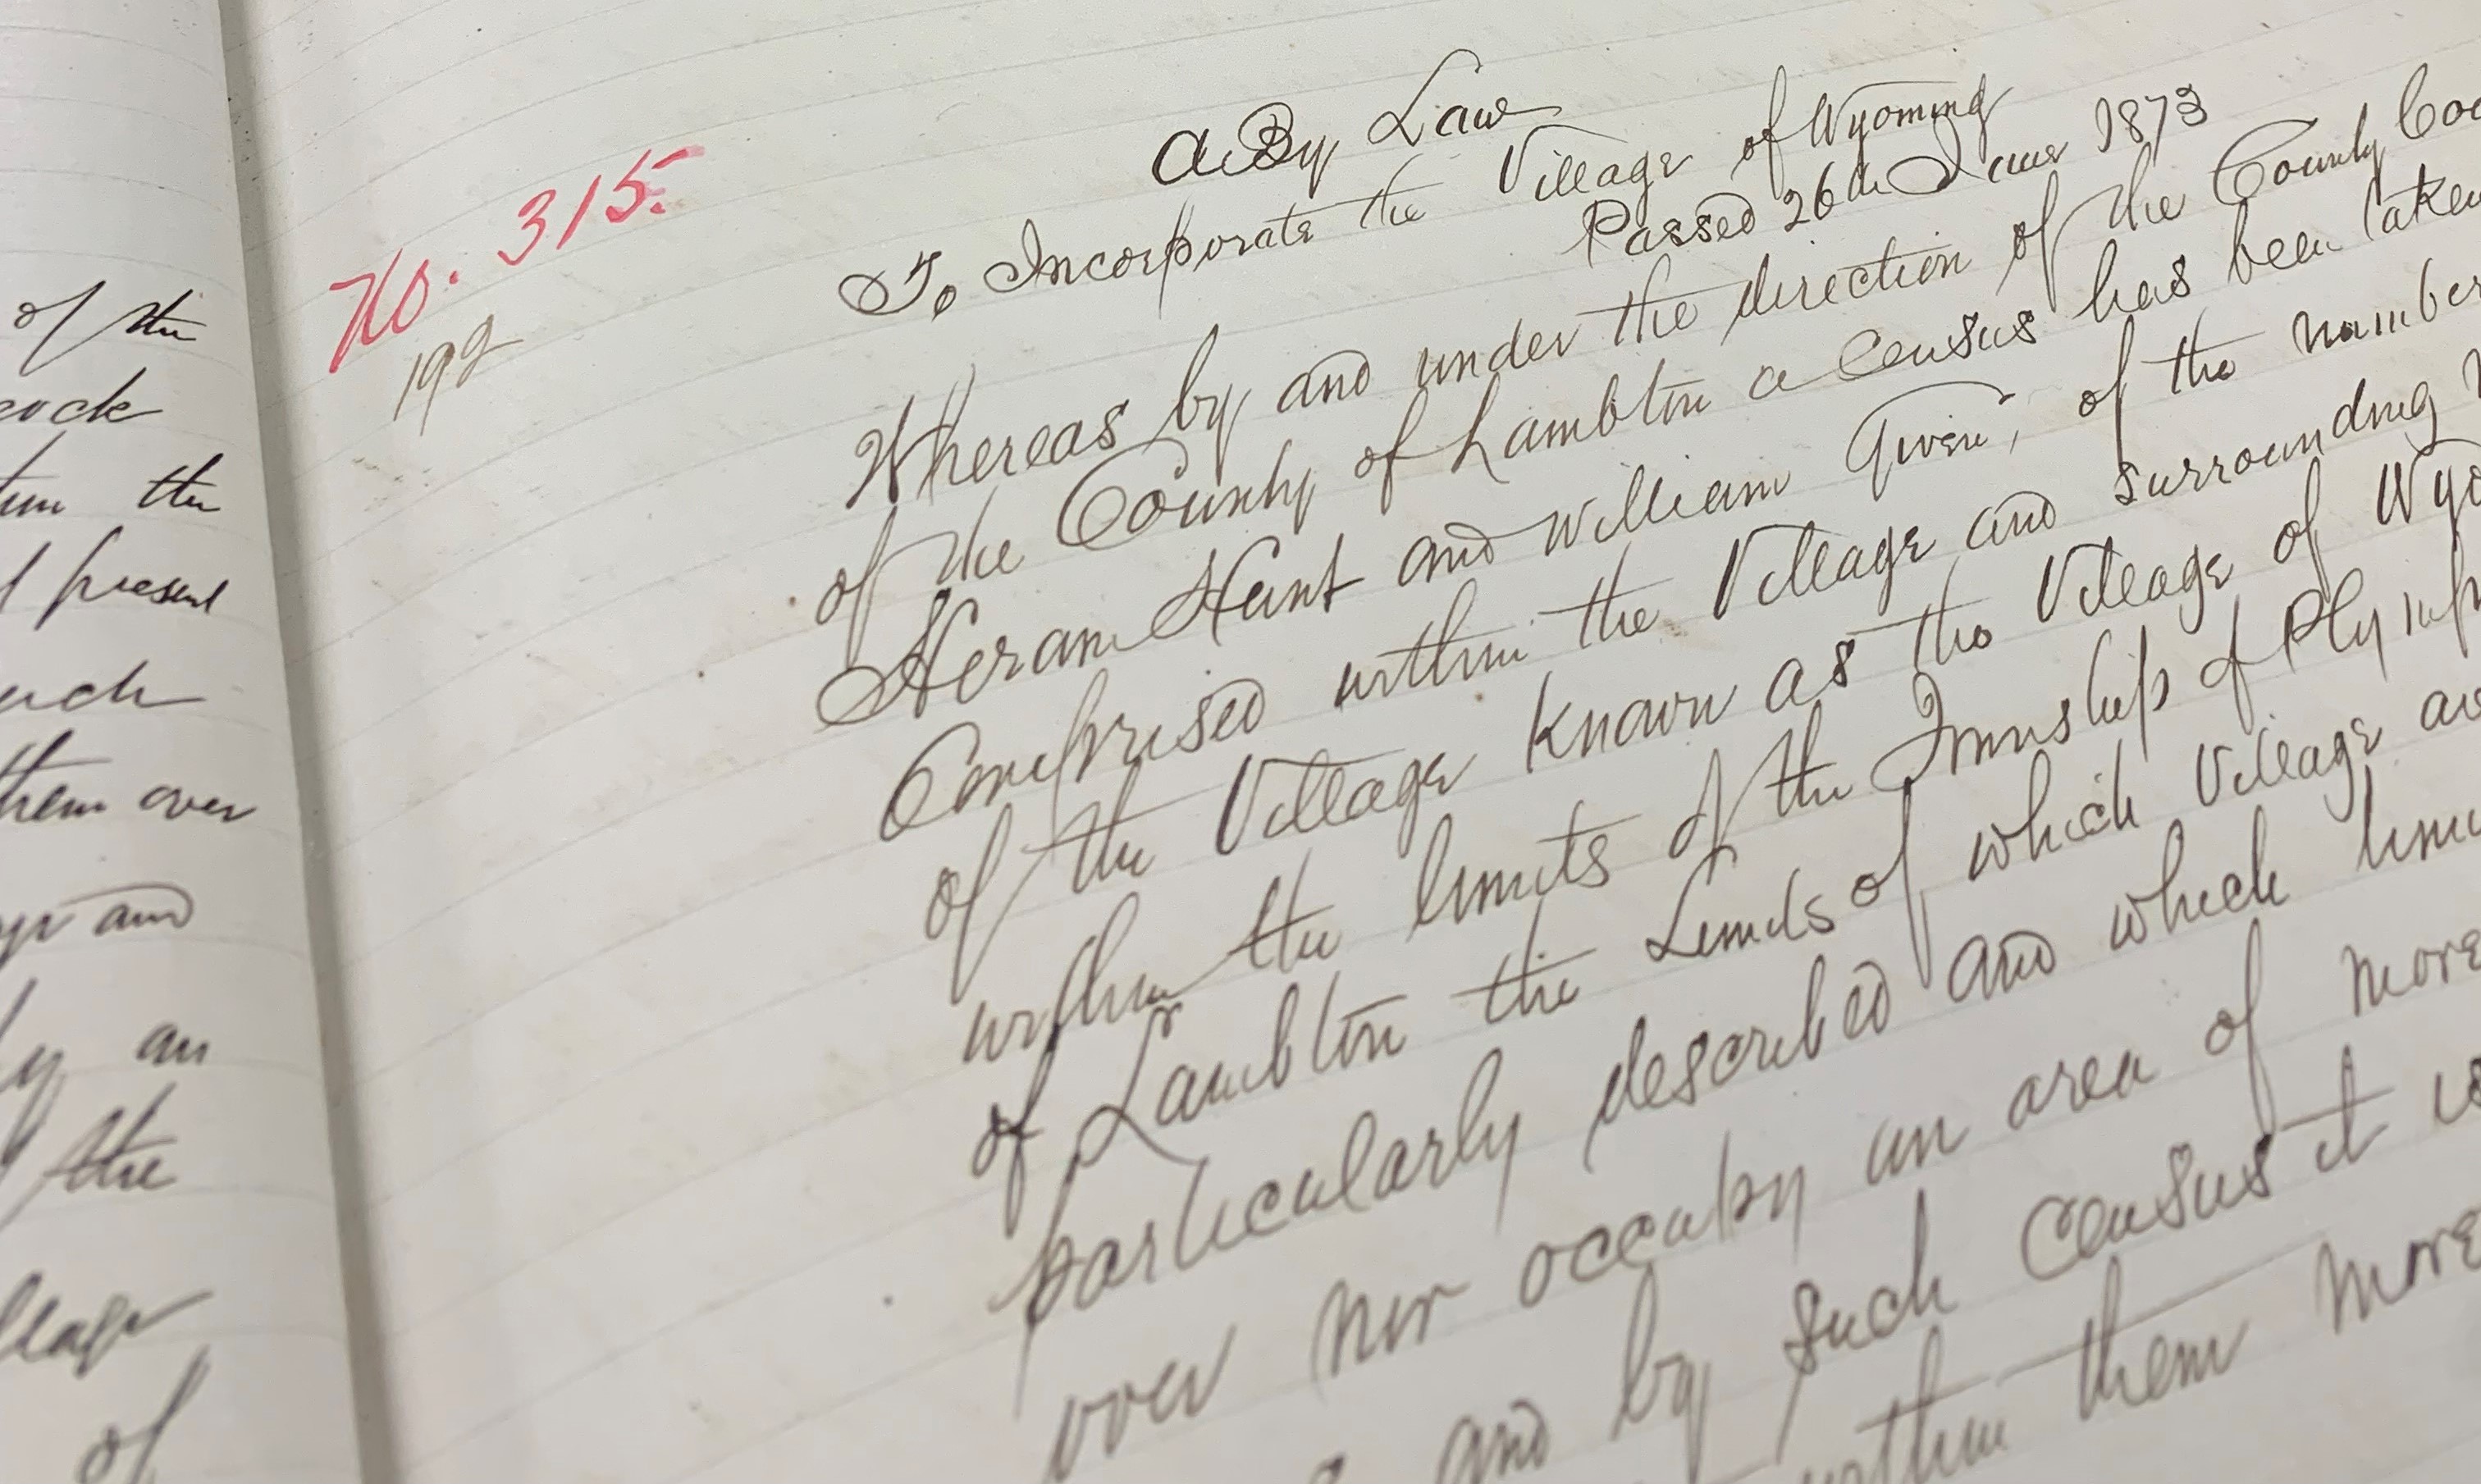 of the
cock
the
present
them over
and
an
the
of
No. 315.
192
A By Law
To Incorporate the Village of Wyoming
Passed 26th June 1873
Whereas by and under the direction of the County Cou
of the County of Lambton a Census has been taken
Heram Hunt and William Given, of the number
Comprised within the Village and surrounding
of the Village known as the Village of Wyo
within the limits of the Township of Plymp
of Lambton the Limits of which Village are
particularly described and which limi
over nor occupy an area of more
and by such Census it is
within them more